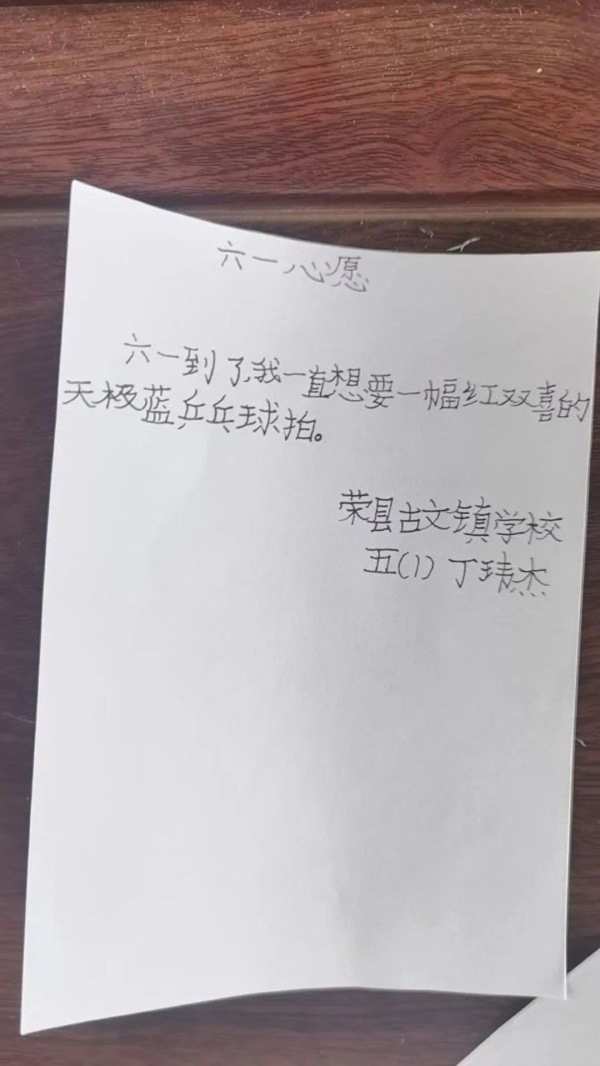 六一心愿
六一到了,我一直想要一幅红双喜的
天极蓝乒乓球拍。
荣县古文镇学校
五(1) 丁玮杰